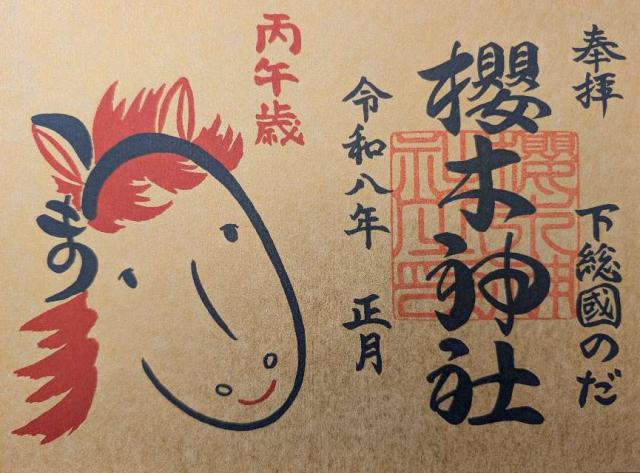 奉拝
下総國のだ
櫻木神社
令和八年 正月
丙午歳